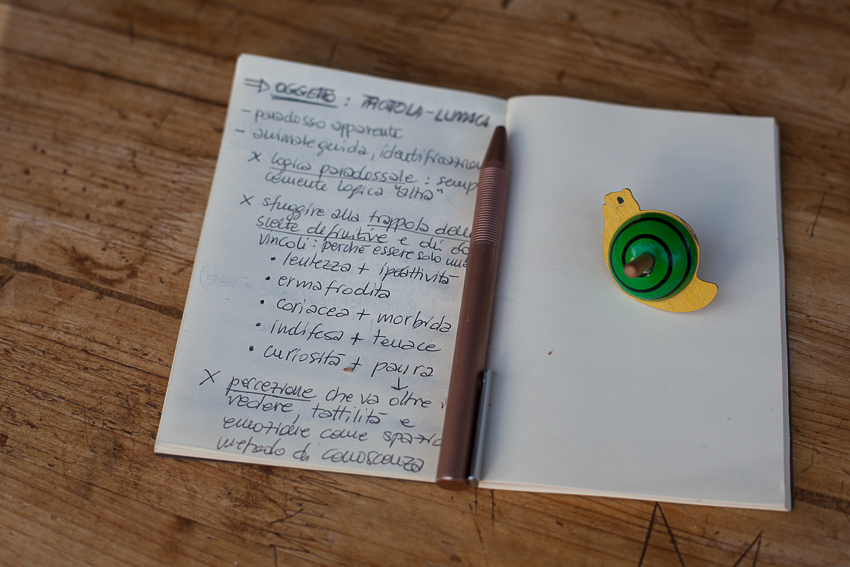 ⇒ OGGETTO : TROTOLA-LUMACA
- paradosso apparente
- animale guida, identificazione
x logica paradossale : semp
cemente logica "altra"
x sfuggire alla trappola delle
scelte definitive e di do
vincoli : perché essere solo una
• lentezza + iperattività
• ermafrodita
• coriacea + morbida
• indifesa + tenace
• curiosità + paura
↓
x percezione che va oltre i
vedere, tattilità e
emozione come spazio
metodo di conoscenza